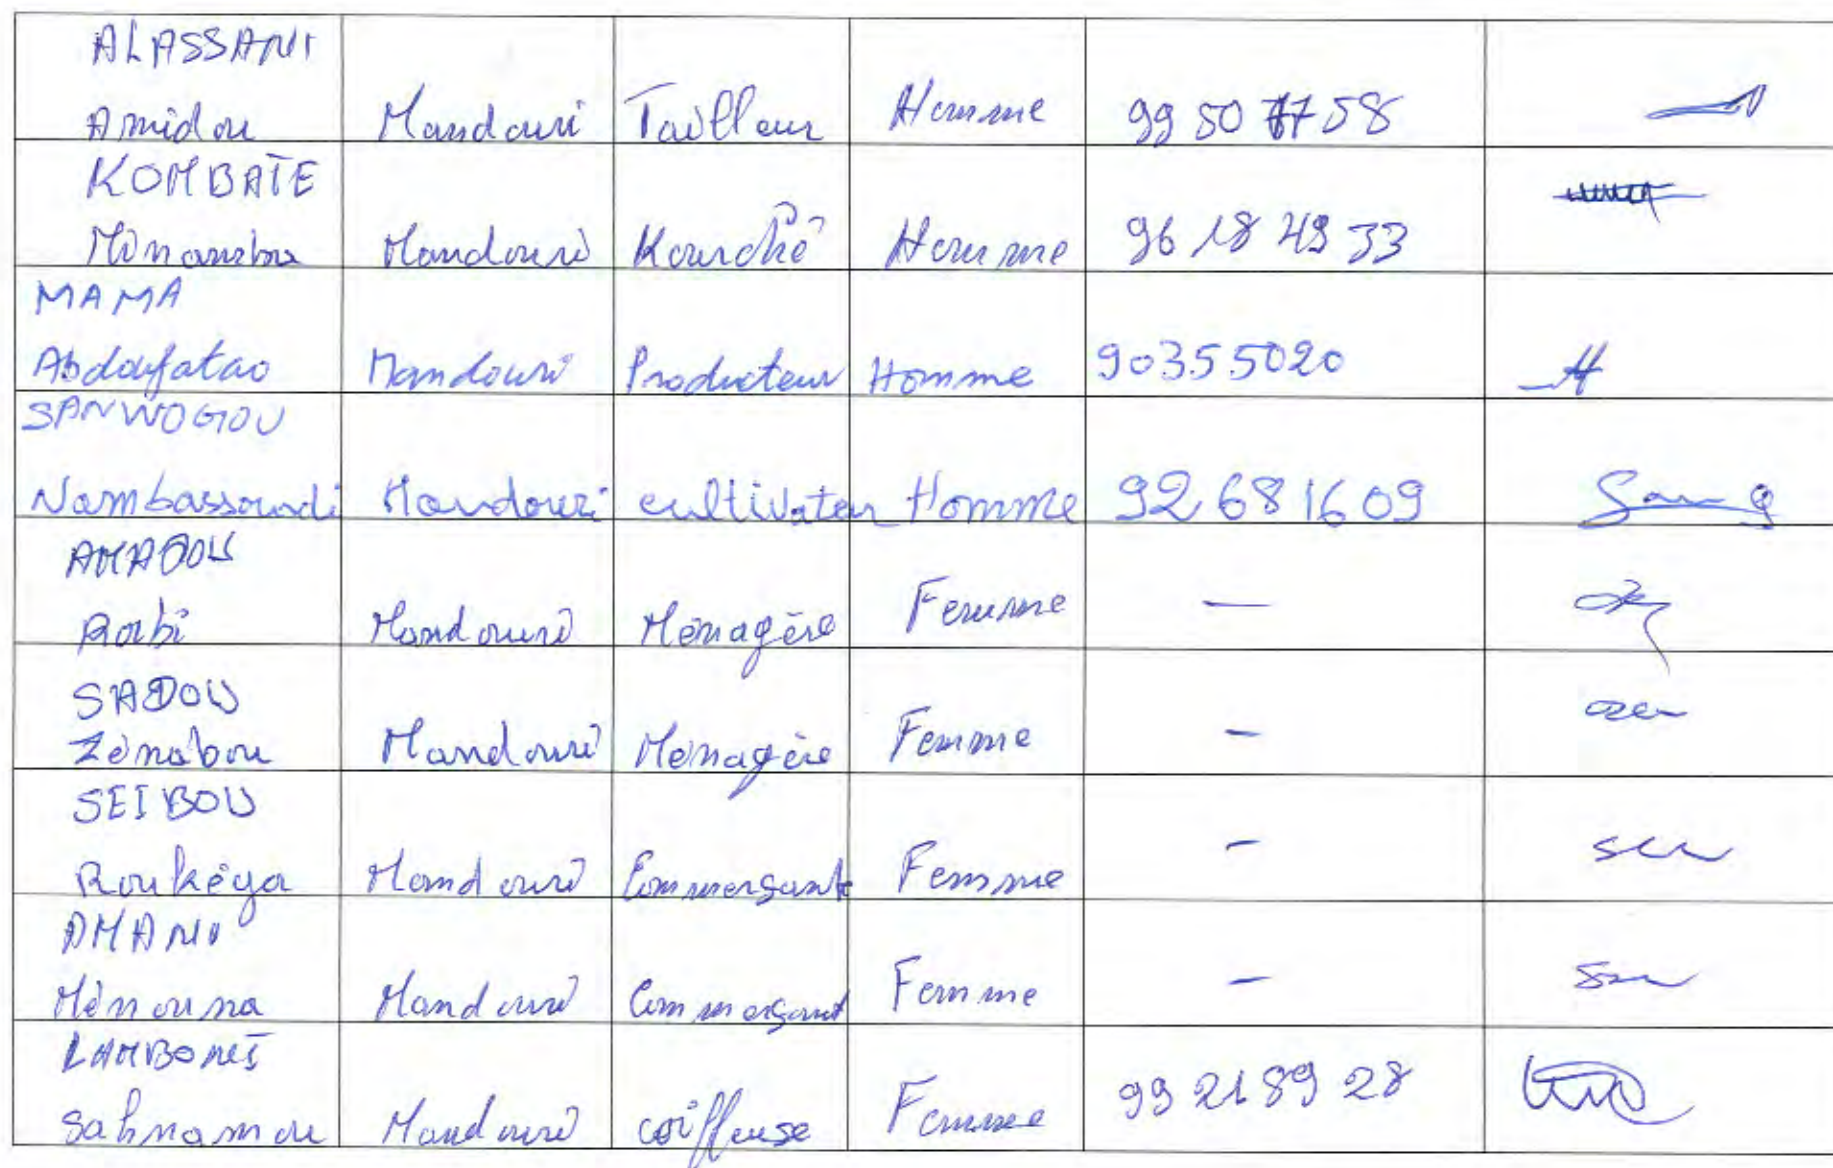 ALASSANI
Amidou Mandouri Tailleur Homme 99 50 77 58
KOMBATE
Mandouri Homme 96 18 49 33
MAMA
Abdoufatao Mandouri Producteur Homme 90355020
SANWOGOU
Nambassoundi Mandouri cultivateur Homme 92 68 16 09
AMADOU
Rabi Mandouri Ménagère Femme —
SADOU
Zénabou Mandouri Ménagère Femme -
SEIBOU
Roukéya Mandouri Commerçante Femme -
AMANI
Mandouri Commerçant Femme -
LAMBONI
Mandouri coiffeuse Femme 99 21 89 28